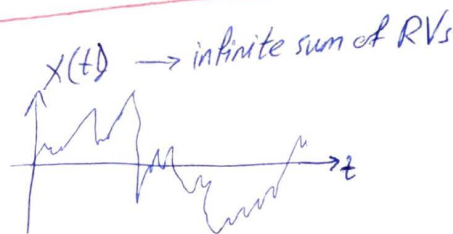 X(t) → infinite sum of RVs
t